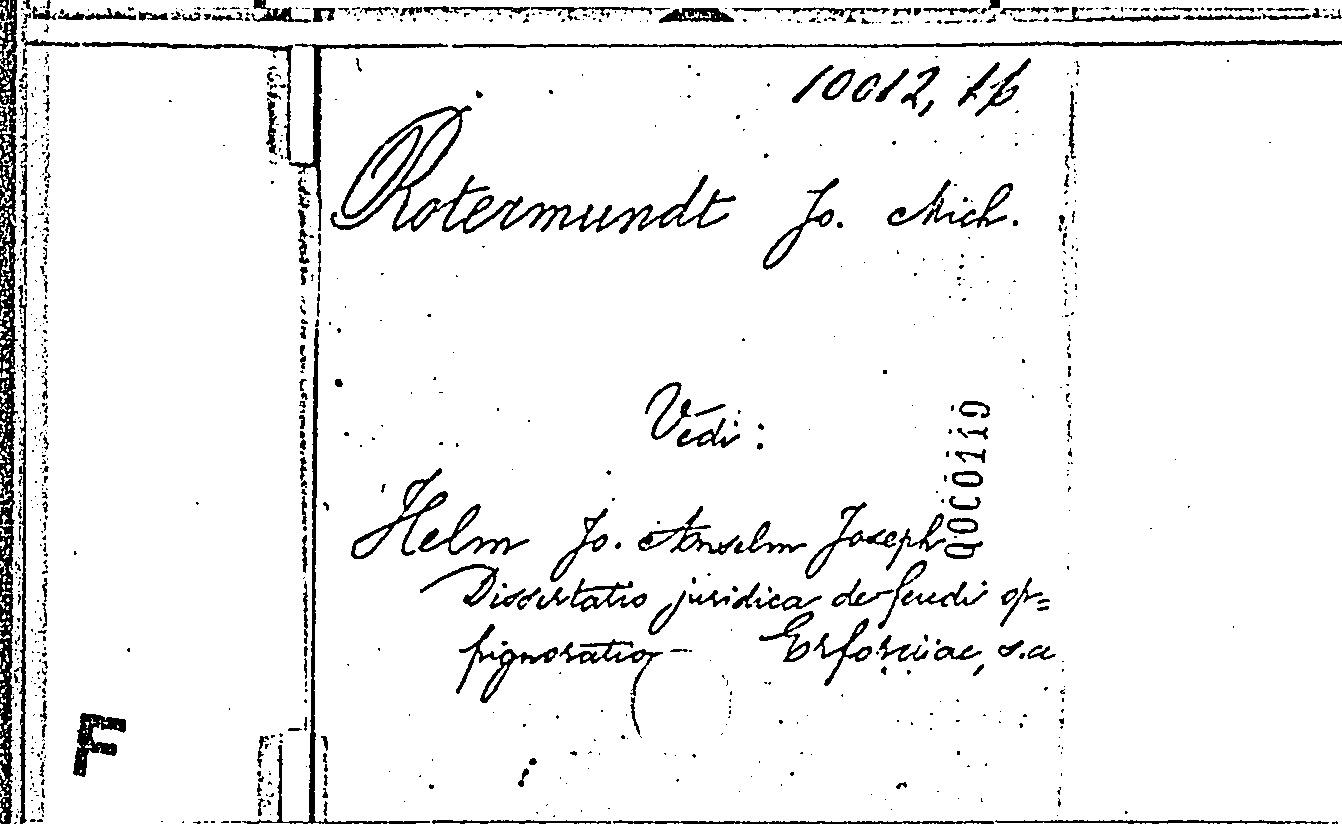 10012, 16
Rotermundt Jo. Mich.
Vedi:
Helm Jo. Anselm Joseph
Dissertatio juridica de feudi op=
pignoratio- Erfordiae, s.a
F